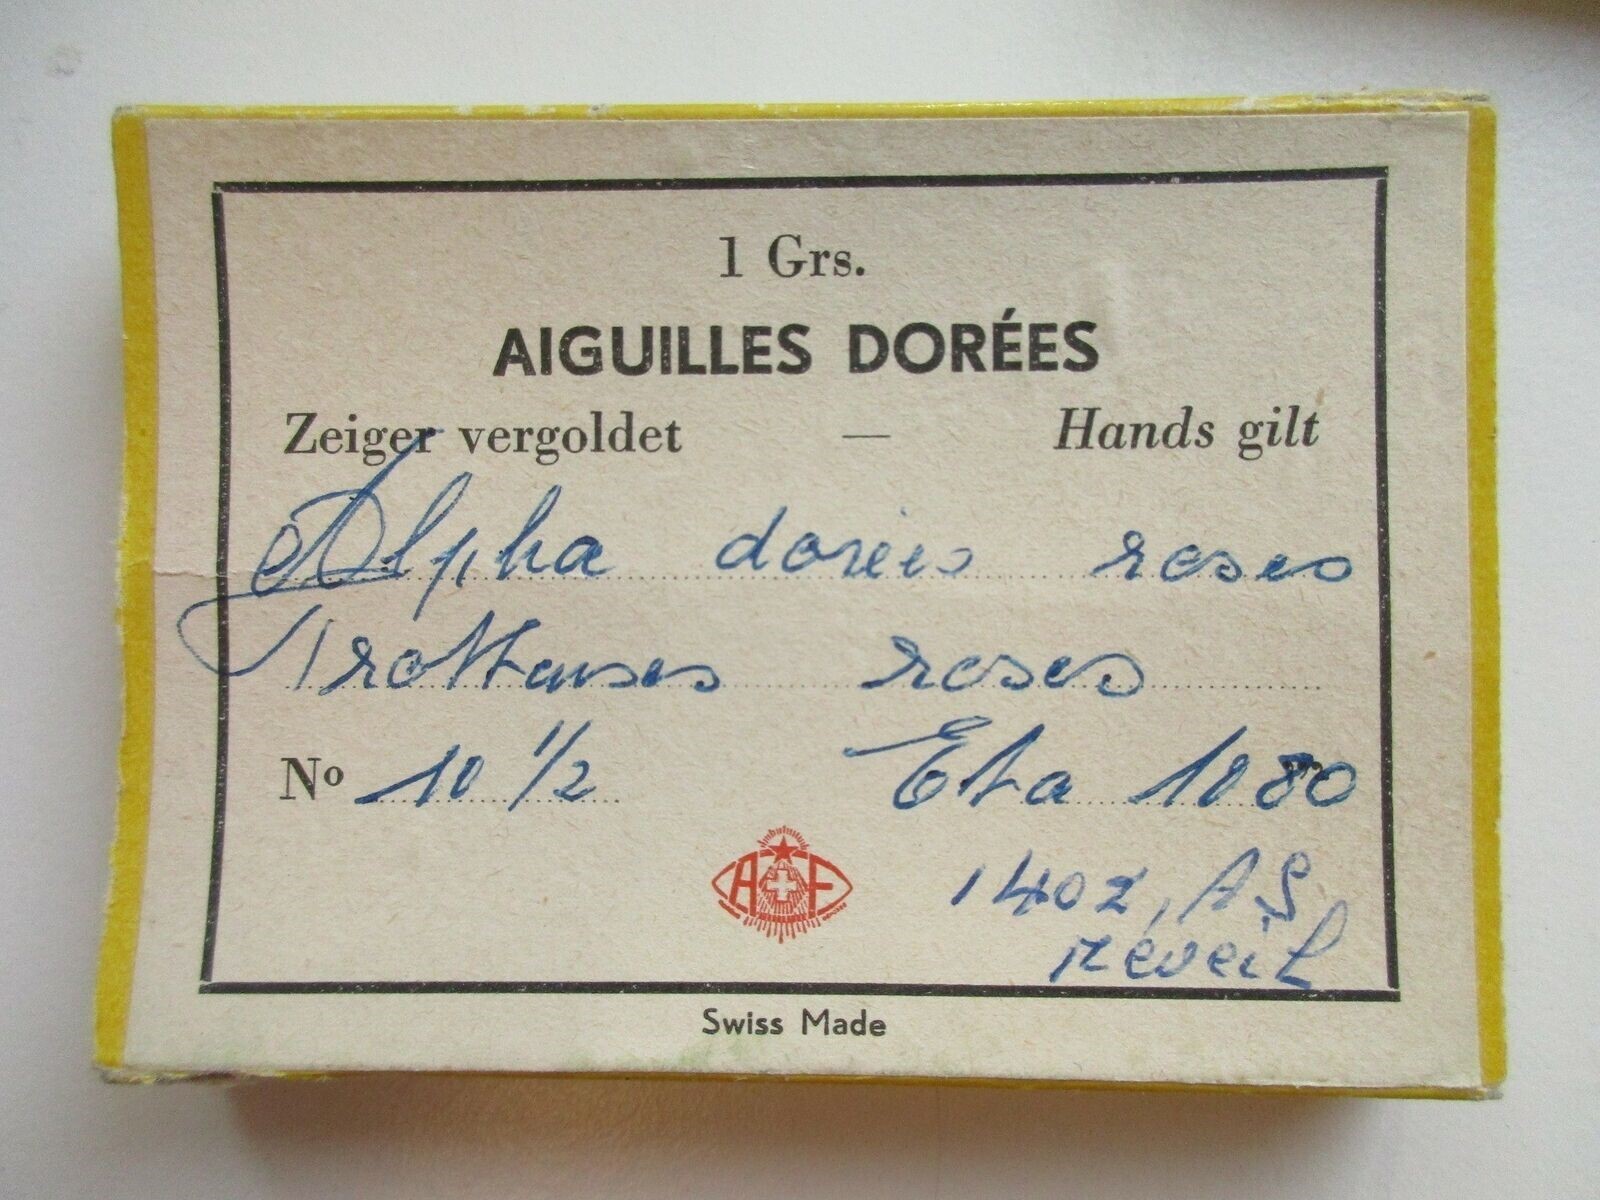 1 Grs.
AIGUILLES DORÉES
Zeiger vergoldet — Hands gilt
Alpha dorées roses
Trotteuses roses
Nº 10 1/2 Eta 1080
A F
1402, AS
reveil
Swiss Made